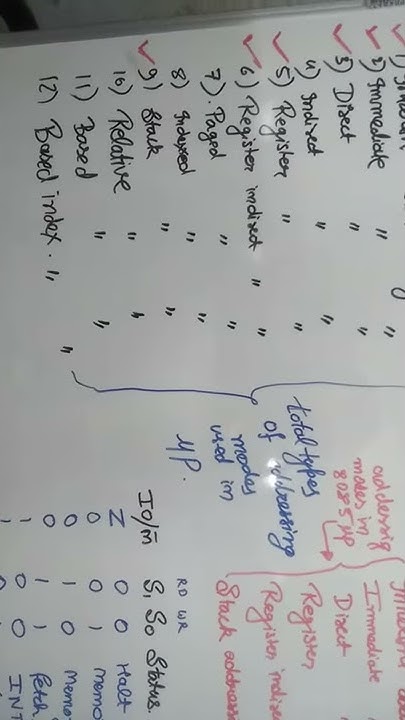 2) Immediate " "
3) Direct " "
4) Indirect " "
5) Register " "
6) Register indirect " "
7) Paged " "
8) Indexed " "
9) Stack " "
10) Relative " "
11) Based " "
12) Based index. " "
total types
of addressing
modes
used in
μP.
addressing
modes in
8085 μP
Immediate
Direct
Register
Register indire
Stack address
RD WR
IO/M̅ S₁ S₀ Status.
Z 0 0 Halt
0 0 1 memo
0 1 0 memo
0 1 1 fetch
1 0 0
1 INT